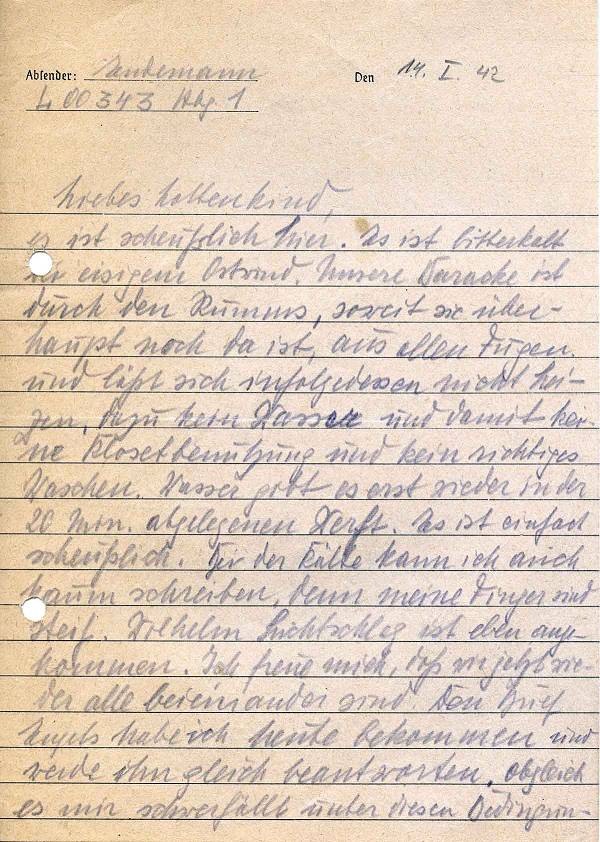 Absender: Sandemann Den 14. I. 42
L 00343 Abg. 1
Liebes
es ist scheußlich hier. Es ist bitterkalt
bei eisigem Ostwind. Unsere Baracke ist
durch den Rumms, soweit sie über-
haupt noch da ist, aus allen Fugen
und läßt sich infolgedessen nicht hei-
zen, dazu kein Wasser und damit kei-
ne Klosetbenutzung und kein richtiges
Waschen. Wasser gibt es erst wieder in der
20 Min. abgelegenen Werft. Es ist einfach
scheußlich. Vor der Kälte kann ich auch
kaum schreiben, denn meine Finger sind
steif. Wilhelm ist eben ange-
kommen. Ich freue mich, daß wir jetzt wie-
der alle beieinander sind. Den Brief
habe ich heute bekommen und
werde ihn gleich beantworten, obgleich
es mir schwerfällt unter diesen Bedingun-